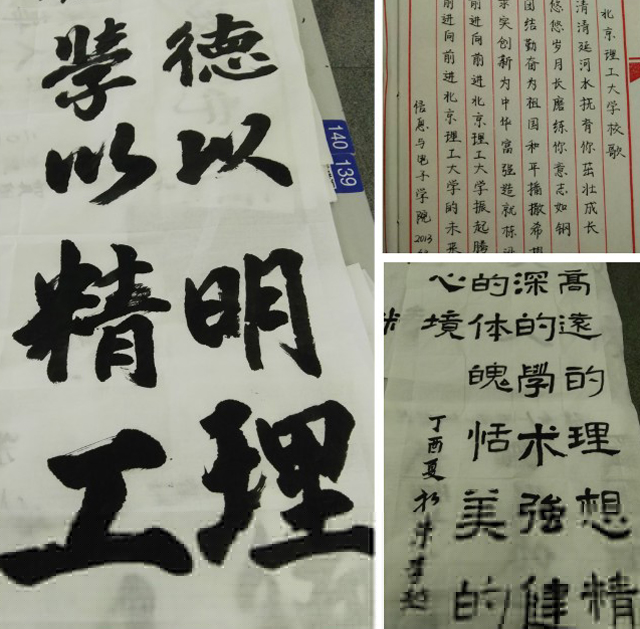 德以明理
學以精工
140
139
北京理工大学校歌
清清延河水抚育你茁壮成长
悠悠岁月长磨练你意志如钢
团结勤奋为祖国和平播撒希
实创新为中华富强造就栋
前进向前进北京理工大学振起腾
前进向前进北京理工大学的未来
信息与电子学院 2013
高遠的理想精
深的學术強健
的体魄恬美的
心境
丁酉夏